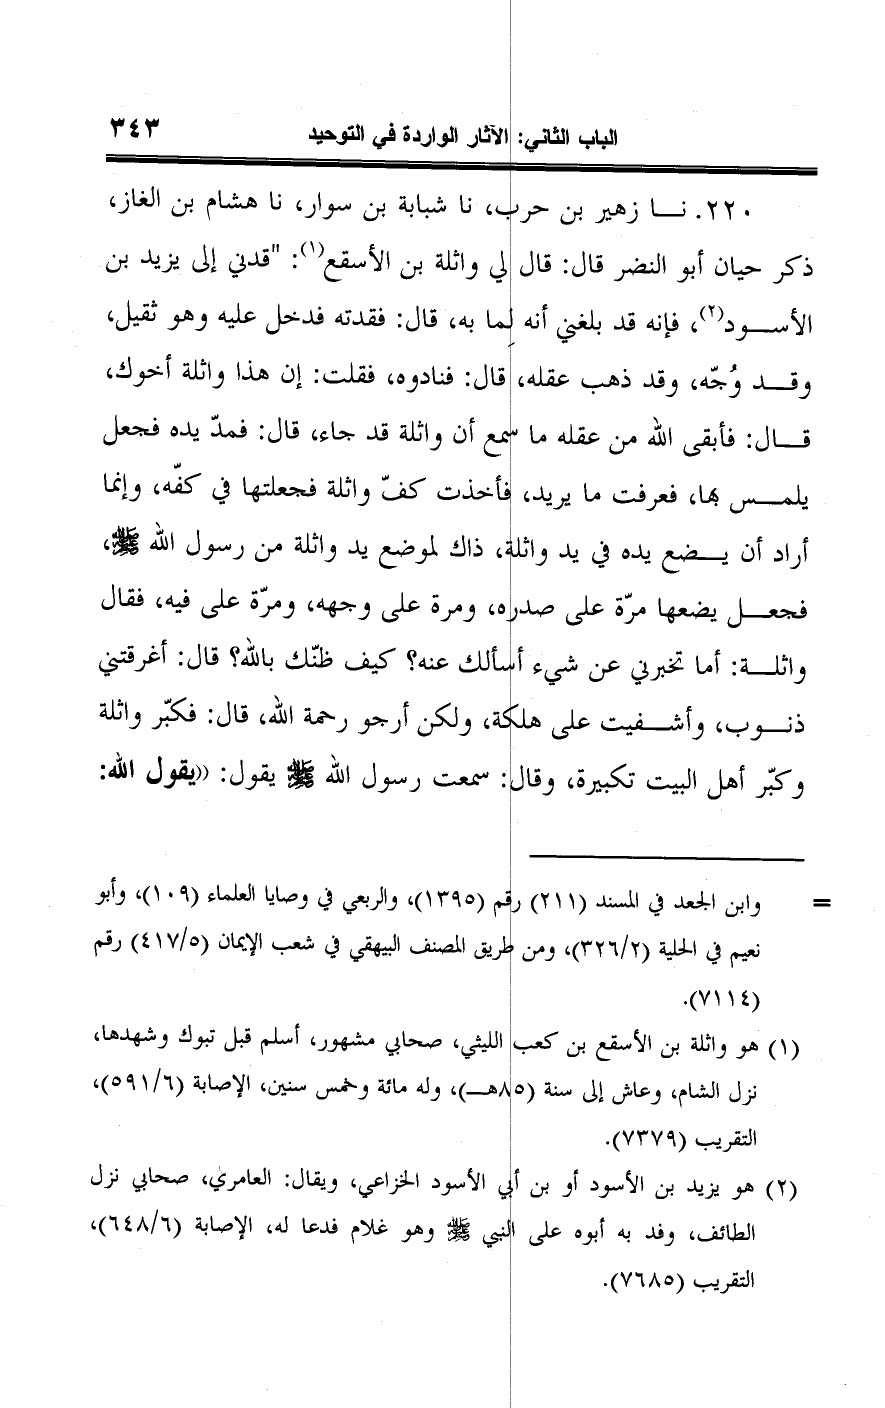 الباب الثاني: الآثار الواردة في التوحيد ٣٤٣
٢٢٠. نا زهير بن حرب، نا شبابة بن سوار، نا هشام بن الغاز،
ذكر حيان أبو النضر قال: قال لي واثلة بن الأسقع(١): "قدني إلى يزيد بن
الأسود(٢)، فإنه قد بلغني أنه لما به، قال: فقدته فدخل عليه وهو ثقيل،
وقد وُجّه، وقد ذهب عقله، قال: فنادوه، فقلت: إن هذا واثلة أخوك،
قال: فأبقى الله من عقله ما سمع أن واثلة قد جاء، قال: فمدّ يده فجعل
يلمس بها، فعرفت ما يريد، فأخذت كفّ واثلة فجعلتها في كفّه، وإنما
أراد أن يضع يده في يد واثلة، ذاك لموضع يد واثلة من رسول الله ﷺ،
فجعل يضعها مرّة على صدره، ومرة على وجهه، ومرّة على فيه، فقال
واثلة: أما تخبرني عن شيء أسألك عنه؟ كيف ظنّك بالله؟ قال: أغرقتني
ذنوب، وأشفيت على هلكة، ولكن أرجو رحمة الله، قال: فكبّر واثلة
وكبّر أهل البيت تكبيرة، وقال: سمعت رسول الله ﷺ يقول: ((يقول الله:
= وابن الجعد في المسند (٢١١) رقم (١٣٩٥)، والربعي في وصايا العلماء (١٠٩)، وأبو
نعيم في الحلية (٣٢٦/٢)، ومن طريق المصنف البيهقي في شعب الإيمان (٤١٧/٥) رقم
(٧١١٤).
(١) هو واثلة بن الأسقع بن كعب الليثي، صحابي مشهور، أسلم قبل تبوك وشهدها،
نزل الشام، وعاش إلى سنة (٨٥هـ)، وله مائة وخمس سنين، الإصابة (٥٩١/٦)،
التقريب (٧٣٧٩).
(٢) هو يزيد بن الأسود أو بن أبي الأسود الخزاعي، ويقال: العامري، صحابي نزل
الطائف، وفد به أبوه على النبي ﷺ وهو غلام فدعا له، الإصابة (٦٤٨/٦)،
التقريب (٧٦٨٥).